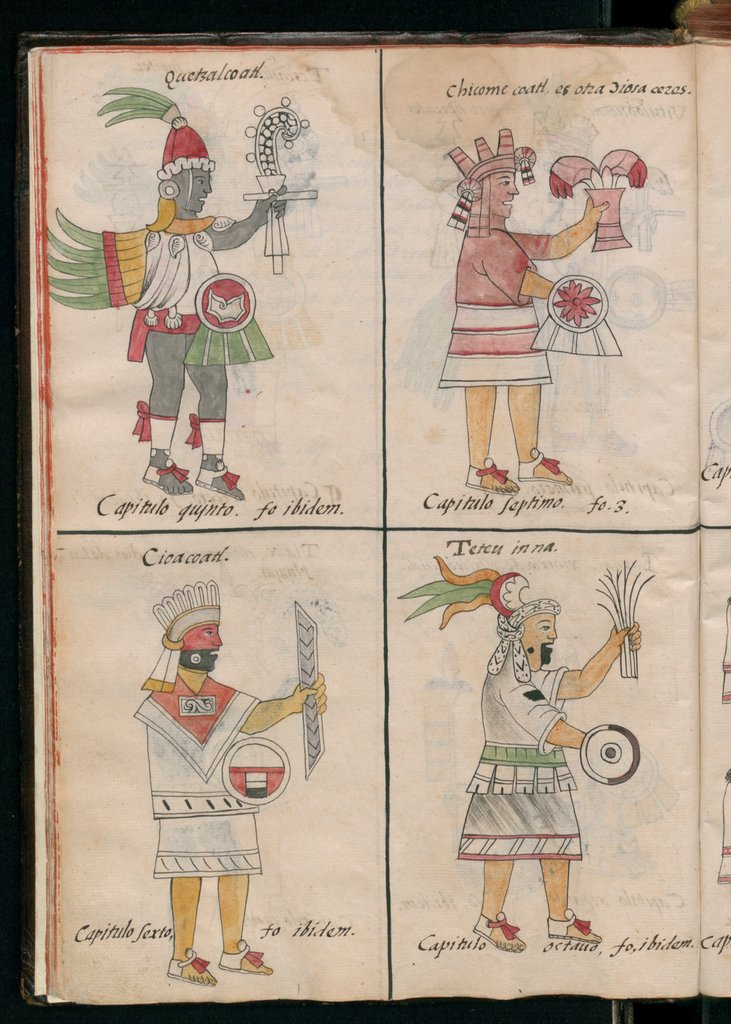 Quetzalcoatl.
Capitulo quinto. fo ibidem.
Chicome coatl, es otra Diosa ceres.
Capitulo septimo. fo. 3.
Cioacoatl.
Capitulo sexto, fo ibidem.
Teteu inna.
Capitulo octauo, fo, ibidem.
Cap
Cap